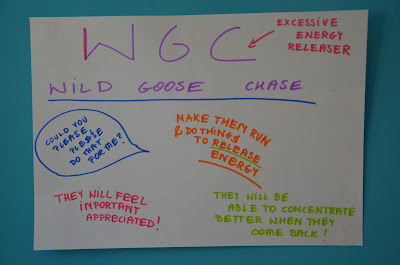 WGC
EXCESSIVE
ENERGY
RELEASER
WILD GOOSE CHASE
COULD YOU
PLEASE
PLEASE
DO THAT
FOR ME?
MAKE THEM RUN
& DO THINGS
TO RELEASE
ENERGY
THEY WILL FEEL
IMPORTANT
APPRECIATED!
THEY WILL BE
ABLE TO CONCENTRATE
BETTER WHEN THEY
COME BACK!